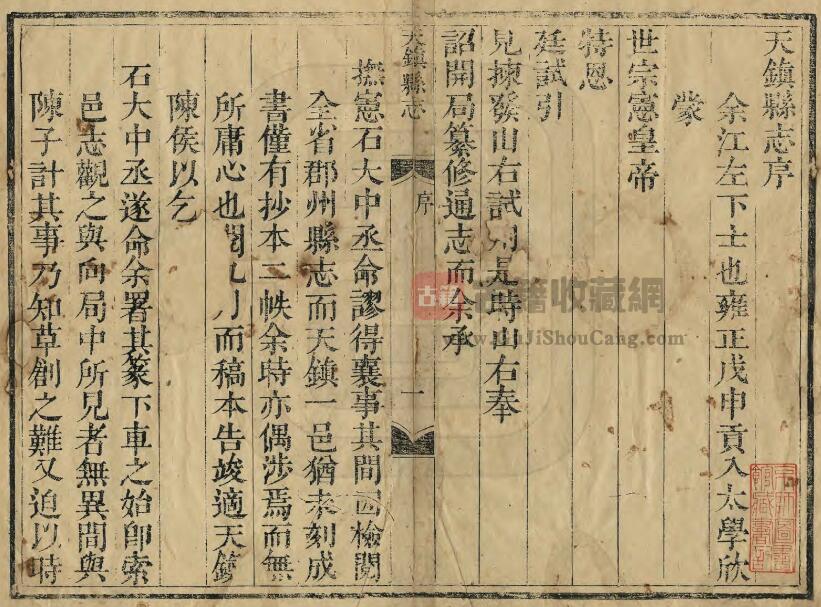 天鎮縣志序
余江左下士也雍正戊申貢入太學欣
蒙
世宗憲皇帝
特恩
廷試引
見揀發山右試用是時山右奉
詔開局纂修通志而余承
天鎮縣志
序
一
撫憲石大中丞命謬得襄事其間因檢閱
全省郡州縣志而天鎮一邑猶未刻成
書僅有抄本二帙余時亦偶涉焉而無
所庸心也 月而稿本告竣適天鎮
陳侯以乞
石大中丞遂命余署其篆下車之始即索
邑志觀之與向局中所見者無異間與
陳子計其事乃知草創之難又迫以時
古籍
古籍收藏網
www.GuJiShouCang.com